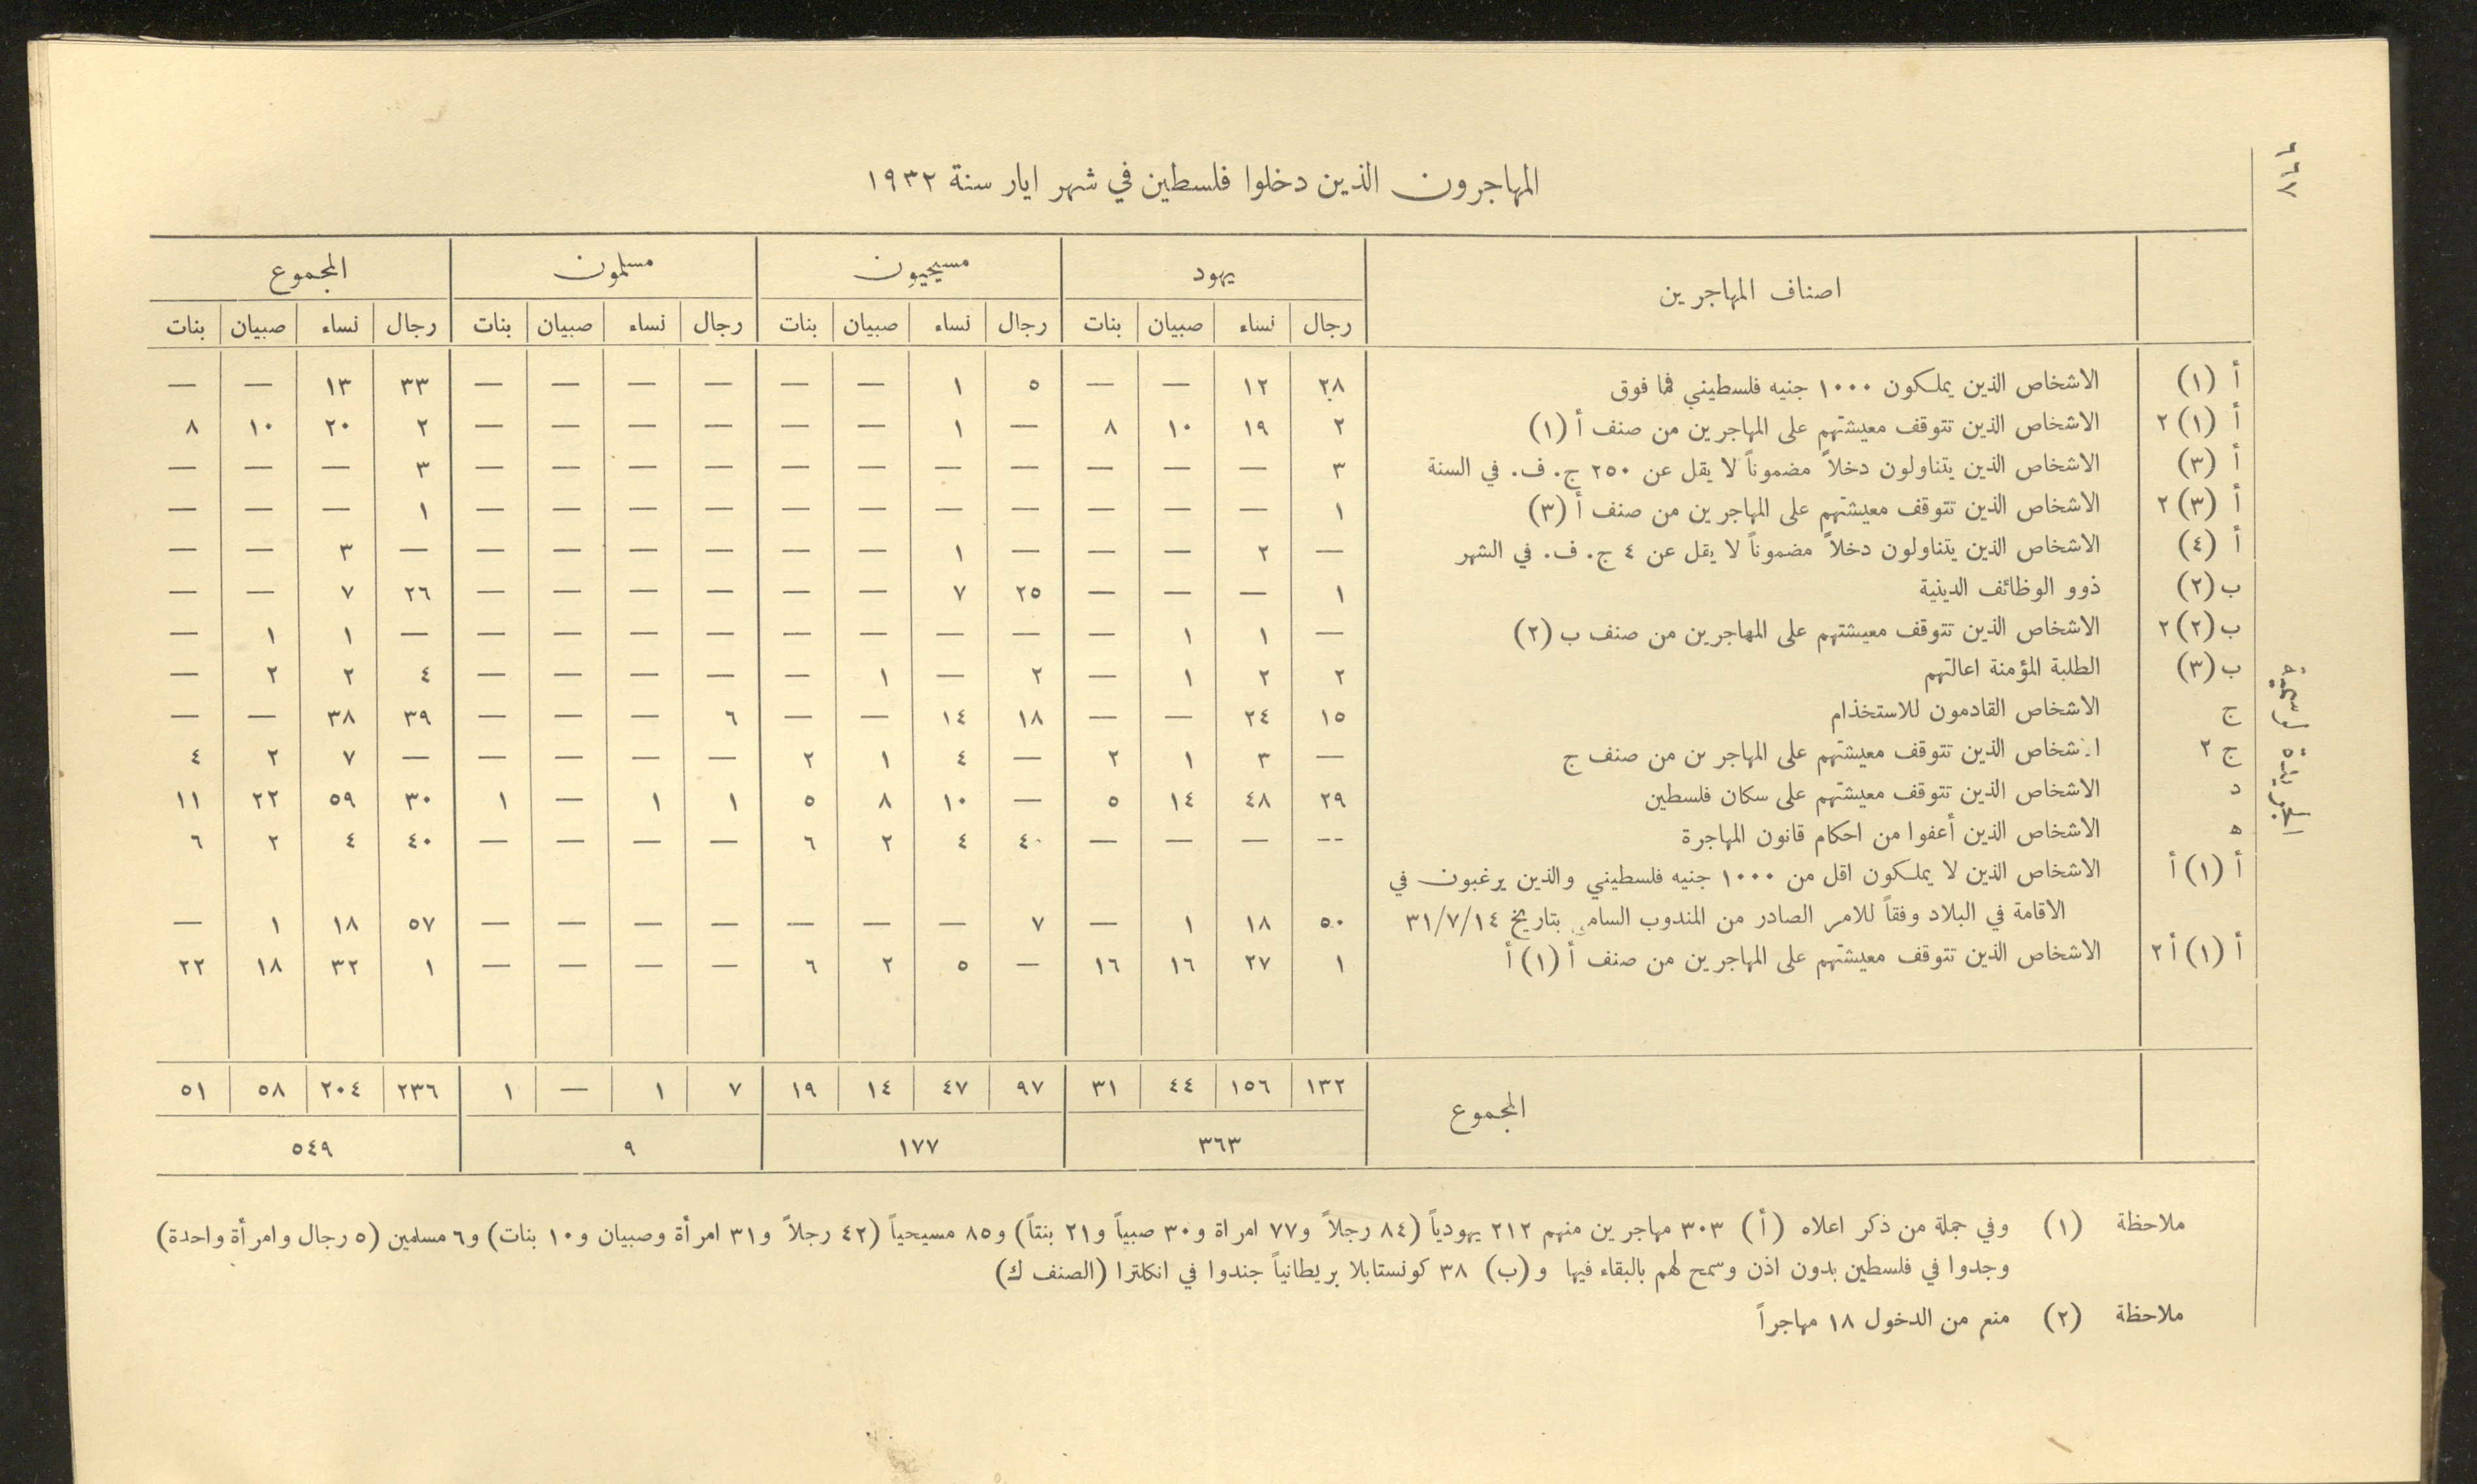 ٦٦٧
الجريدة الرسمية
المهاجرون الذين دخلوا فلسطين في شهر ايار سنة ١٩٣٢
اصناف المهاجرين يهود مسيحيون مسلمون المجموع
رجال نساء صبيان بنات رجال نساء صبيان بنات رجال نساء صبيان بنات رجال نساء صبيان بنات
أ (١) الاشخاص الذين يملكون ١٠٠٠ جنيه فلسطيني فما فوق ٢٨ ١٢ — — ٥ ١ — — — — — — ٣٣ ١٣ — —
أ (١) ٢ الاشخاص الذين تتوقف معيشتهم على المهاجرين من صنف أ (١) ٢ ١٩ ١٠ ٨ — ١ — — — — — — ٢ ٢٠ ١٠ ٨
أ (٣) الاشخاص الذين يتناولون دخلاً مضموناً لا يقل عن ٢٥٠ ج. ف. في السنة ٣ — — — — — — — — — — — ٣ — — —
أ (٣) ٢ الاشخاص الذين تتوقف معيشتهم على المهاجرين من صنف أ (٣) ١ — — — — — — — — — — — ١ — — —
أ (٤) الاشخاص الذين يتناولون دخلاً مضموناً لا يقل عن ٤ ج. ف. في الشهر — ٢ — — — ١ — — — — — — — ٣ — —
ب (٢) ذوو الوظائف الدينية ١ — — — ٢٥ ٧ — — — — — — ٢٦ ٧ — —
ب (٢) ٢ الاشخاص الذين تتوقف معيشتهم على المهاجرين من صنف ب (٢) — ١ ١ — — — — — — — — — — ١ ١ —
ب (٣) الطلبة المؤمنة اعالتهم ٢ ٢ ١ — ٢ — ١ — — — — — ٤ ٢ ٢ —
ج الاشخاص القادمون للاستخذام ١٥ ٢٤ — — ١٨ ١٤ — — ٦ — — — ٣٩ ٣٨ — —
ج ٢ الاشخاص الذين تتوقف معيشتهم على المهاجرين من صنف ج — ٣ ١ ٢ — ٤ ١ ٢ — — — — — ٧ ٢ ٤
د الاشخاص الذين تتوقف معيشتهم على سكان فلسطين ٢٩ ٤٨ ١٤ ٥ — ١٠ ٨ ٥ ١ ١ — ١ ٣٠ ٥٩ ٢٢ ١١
ه الاشخاص الذين أعفوا من احكام قانون المهاجرة — — — — ٤٠ ٤ ٢ ٦ — — — — ٤٠ ٤ ٢ ٦
أ (١) أ الاشخاص الذين لا يملكون اقل من ١٠٠٠ جنيه فلسطيني والذين يرغبون في
الاقامة في البلاد وفقاً للامر الصادر من المندوب السامي بتاريخ ٣١/٧/١٤ ٥٠ ١٨ ١ — ٧ — — — — — — — ٥٧ ١٨ ١ —
أ (١) أ ٢ الاشخاص الذين تتوقف معيشتهم على المهاجرين من صنف أ (١) أ ١ ٢٧ ١٦ ١٦ — ٥ ٢ ٦ — — — — ١ ٣٢ ١٨ ٢٢
المجموع ١٣٢ ١٥٦ ٤٤ ٣١ ٩٧ ٤٧ ١٤ ١٩ ٧ ١ — ١ ٢٣٦ ٢٠٤ ٥٨ ٥١
٣٦٣ ١٧٧ ٩ ٥٤٩
ملاحظة (١) وفي جملة من ذكر اعلاه (أ) ٣٠٣ مهاجرين منهم ٢١٢ يهودياً (٨٤ رجلاً و٧٧ امراة و٣٠ صبياً و٢١ بنتاً) و٨٥ مسيحياً (٤٢ رجلاً و٣١ امرأة وصبيان و١٠ بنات) و٦ مسلمين (٥ رجال وامرأة واحدة)
وجدوا في فلسطين بدون اذن وسمح لهم بالبقاء فيها و (ب) ٣٨ كونستابلا بريطانياً جندوا في انكلترا (الصنف ك)
ملاحظة (٢) منع من الدخول ١٨ مهاجراً